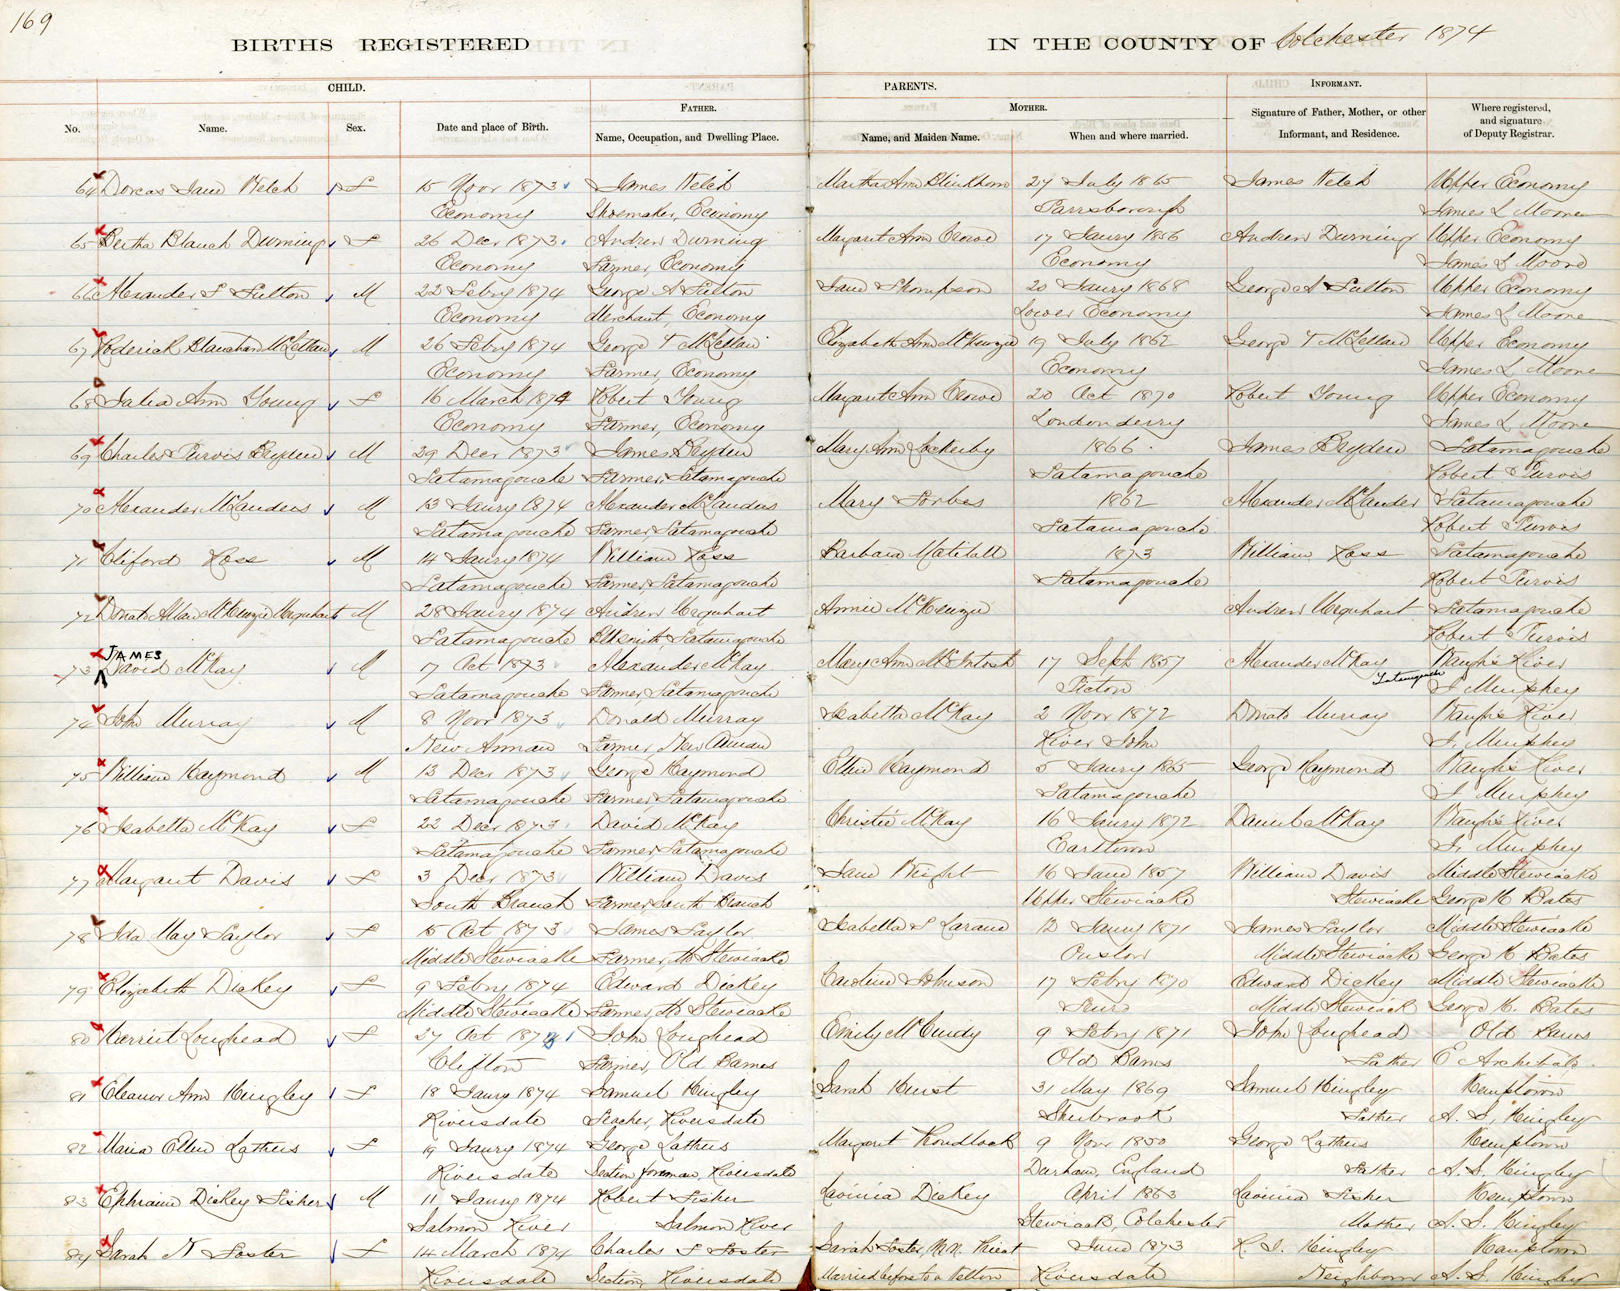 169
BIRTHS REGISTERED IN THE COUNTY OF Colchester 1874
CHILD. PARENTS. INFORMANT.
FATHER. MOTHER.
No. Name. Sex. Date and place of Birth. Name, Occupation, and Dwelling Place. Name, and Maiden Name. When and where married. Signature of Father, Mother, or other Informant, and Residence. Where registered, and signature of Deputy Registrar.
64 Dorcas Jane Welch F 15 Novr 1873 James Welch Martha Ann Blinkhorn 27 July 1865 James Welch Upper Economy
Economy Shoemaker, Economy Parrsborough James L Moore
65 Bertha Blanch Durning F 26 Decr 1873 Andrew Durning Margaret Ann Crowe 17 Jaury 1856 Andrew Durning Upper Economy
Economy Farmer, Economy Economy James L Moore
66 Alexander F Fulton M 22 Febry 1874 George A Fulton Jane Thompson 20 Jaury 1868 George A Fulton Upper Economy
Economy Merchant, Economy Lower Economy James L Moore
67 Roderick Blanchar McLellan M 26 Febry 1874 George T McLellan Elizabeth Ann McKenzie 19 July 1862 George T McLellan Upper Economy
Economy Farmer, Economy Economy James L Moore
68 Ann Young F 16 March 1874 Robert Young Margaret Ann Crowe 20 Oct 1870 Robert Young Upper Economy
Economy Farmer, Economy Londonderry James L Moore
69 Charles Purvis Bryden M 29 Decr 1873 James Bryden Mary Ann Lockerby 1866 James Bryden Tatamagouche
Tatamagouche Farmer, Tatamagouche Tatamagouche Robert Purvis
70 Alexander McLanders M 13 Jaury 1874 Alexander McLanders Mary Forbes 1862 Alexander McLander Tatamagouche
Tatamagouche Farmer Tatamagouche Tatamagouche Robert Purvis
71 Cliford Ross M 14 Jaury 1874 William Ross Barbara Matilda 1873 William Ross Tatamagouche
Tatamagouche Farmer, Tatamagouche Tatamagouche Robert Purvis
72 Donald Allan McKenzie Urquhart M 28 Jaury 1874 Andrew Urquhart Annie McKenzie Andrew Urquhart Tatamagouche
Tatamagouche Blksmith, Tatamagouche Robert Purvis
JAMES
73 David McKay M 17 Oct 1873 Alexander McKay Mary Ann McIntosh 17 Sept 1857 Alexander McKay Waughs River
Tatamagouche Farmer, Tatamagouche Pictou Tatamagouche J. Murphey
74 John Murray M 8 Novr 1873 Donald Murray Isabella McKay 2 Novr 1872 Donald Murray Waughs River
New Annan Farmer, New Annan River John J. Murphey
75 William Raymond M 13 Decr 1873 George Raymond Ellen Raymond 5 Jaury 1865 George Raymond Waughs River
Tatamagouche Farmer Tatamagouche Tatamagouche J. Murphey
76 Isabella McKay F 22 Decr 1873 David McKay Christie McKay 16 Jaury 1872 David McKay Waughs River
Tatamagouche Farmer, Tatamagouche Earltown J. Murphey
77 Margaret Davis F 3 Decr 1873 William Davis Jane Wright 16 June 1857 William Davis Middle Stewiacke
South Branch Farmer, South Branch Upper Stewiacke Stewiacke George K Bates
78 Ida May Taylor F 15 Oct 1873 James Taylor Isabella J 12 Jaury 1871 James Taylor Middle Stewiacke
Middle Stewiacke Farmer, M Stewiacke Onslow Middle Stewiacke George K Bates
79 Elizabeth Dickey F 9 Febry 1874 Edward Dickey Caroline Johnson 17 Febry 1870 Edward Dickey Middle Stewiacke
Middle Stewiacke Farmer, M Stewiacke Truro Middle Stewiack George K. Bates
80 Harriet Loughead F 27 Oct 1873 John Loughead Emily McCurdy 9 Febry 1871 John Loughead Old Barns
Clifton Farmer, Old Barnes Old Barns Father E Archibald
81 Eleanor Ann Kingley F 18 Jaury 1874 Samuel Kingley Sarah Hurst 31 May 1869 Samuel Kingley Kemptown
Riversdale Teacher, Riversdale Sherbrook Father A. S. Kingley
82 Maria Ellen Lathers F 19 Jaury 1874 George Lathers Margaret 9 Novr 1850 George Lathers Kemptown
Riversdale Section foreman, Riversdale Durham, England Father A. S. Kingley
83 Ephraim Dickey Fisher M 11 Jaury 1874 Robert Fisher Lavinia Dickey April 1863 Lavinia Fisher Kemptown
Salmon River Salmon River Stewiack, Colchester Mother A. S. Kingley
84 Sarah N Foster F 14 March 1874 Charles F Foster Sarah Foster, M.N. Priest June 1873 Kingley Kemptown
Riversdale Section, Riversdale Married before to a Nelson Riversdale Neighbour A. S. Kingley